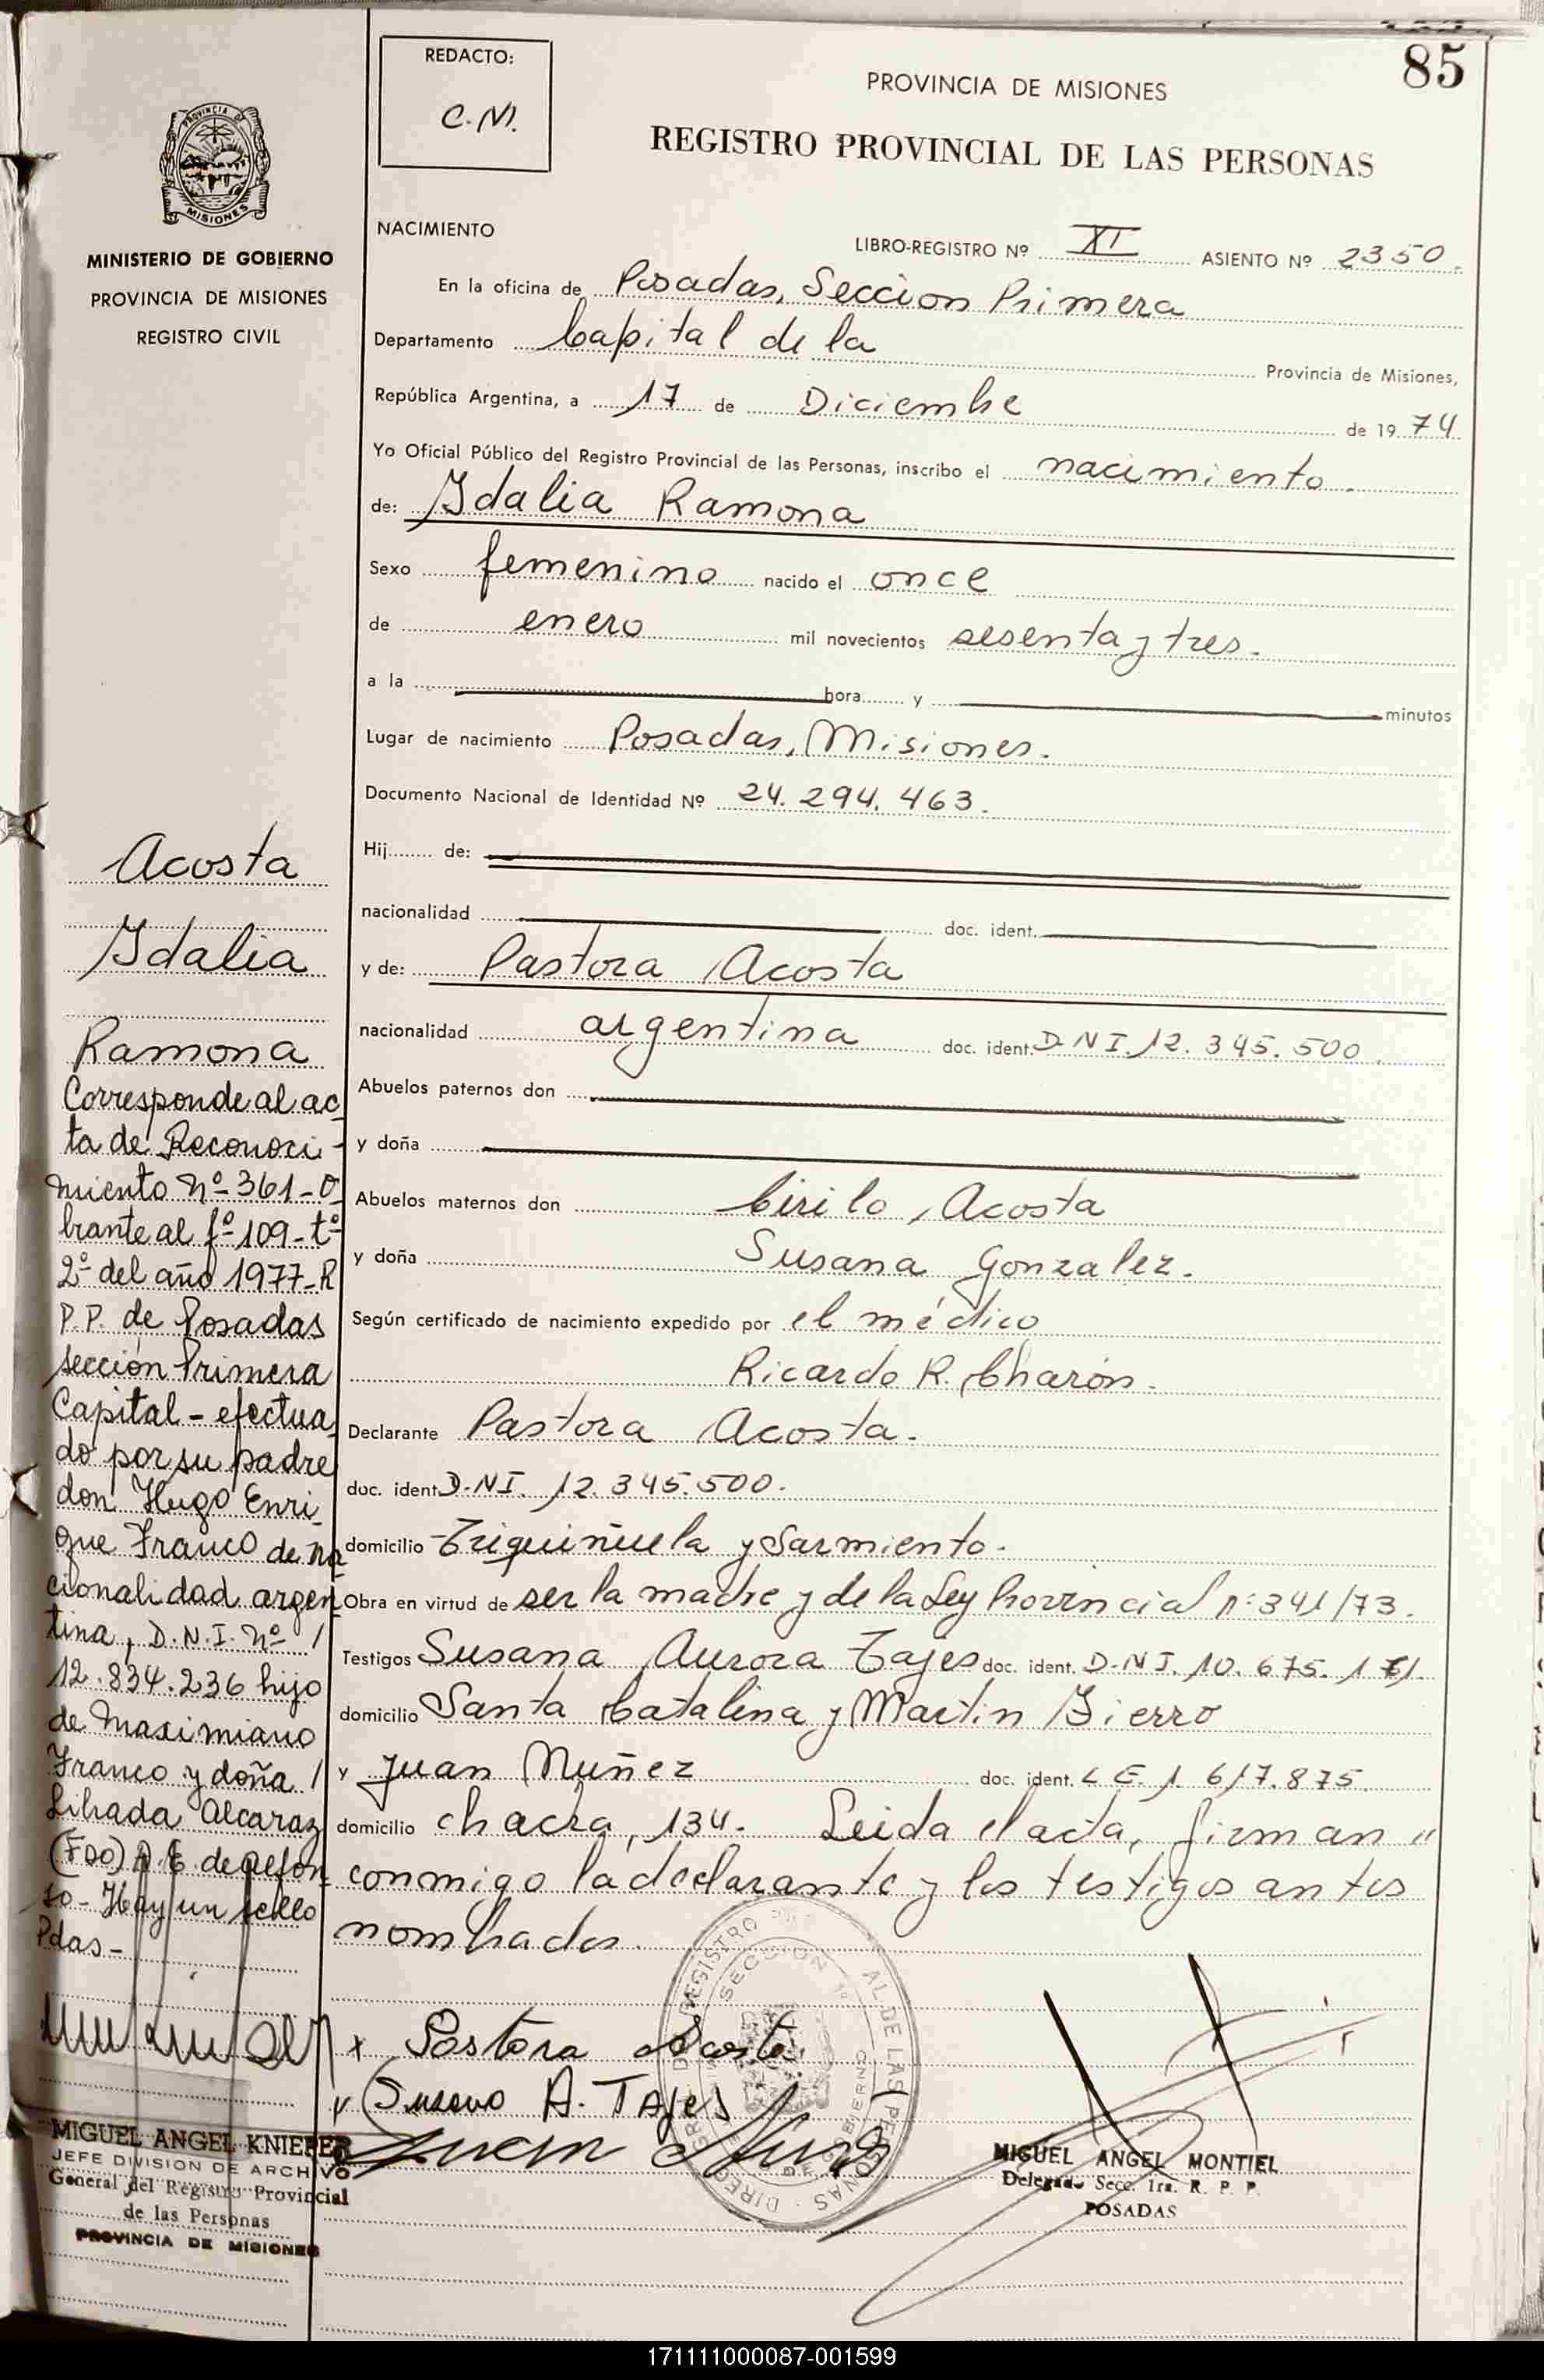 85
REDACTO:
C.N.
PROVINCIA DE MISIONES
REGISTRO PROVINCIAL DE LAS PERSONAS
PROVINCIA DE
MISIONES
MINISTERIO DE GOBIERNO
PROVINCIA DE MISIONES
REGISTRO CIVIL
NACIMIENTO
LIBRO-REGISTRO Nº XI ASIENTO Nº 2350.
En la oficina de Posadas, Seccion Primera
Departamento Capital de la Provincia de Misiones,
República Argentina, a 17 de Diciembre de 1974
Yo Oficial Público del Registro Provincial de las Personas, inscribo el nacimiento.
de: Idalia Ramona
Sexo femenino nacido el once
de enero mil novecientos sesenta y tres.
a la hora y minutos
Lugar de nacimiento Posadas, Misiones.
Documento Nacional de Identidad Nº 24.294.463.
Hij de:
nacionalidad doc. ident.
y de: Pastora Acosta
nacionalidad argentina doc. ident. D.N.I. 12.345.500.
Abuelos paternos don
y doña
Abuelos maternos don Cirilo Acosta
y doña Susana Gonzalez.
Según certificado de nacimiento expedido por el médico
Ricardo R. Charón.
Declarante Pastora Acosta.
doc. ident D.N.I. 12.345.500.
domicilio Triquiñuela y Sarmiento.
Obra en virtud de ser la madre y de la Ley Provincial nº 341/73.
Testigos Susana Aurora Tajes doc. ident. D.N.I. 10.675.
domicilio Santa Catalina y Martin Fierro
y Juan Nuñez doc. ident. L E. 1.617.875.
domicilio chacra 134. Leida el acta, firman "
conmigo la declarante y los testigos antes
nombrados.
Acosta
Idalia
Ramona
Corresponde al ac
ta de Reconoci-
miento Nº 361-O
brante al fº 109-tº
2º del año 1977-R
P.P. de Posadas
sección Primera
Capital - efectua
do por su padre
don Hugo Enri
que Franco de na
cionalidad argen
tina, D.N.I. Nº /
12.834.236 hijo
de Maximiano
Franco y doña /
Librada Alcaraz
(FDO) A. E. de Alfon
so- Hay un sello
Pdas-
x Pastora Acosta
Susana A. Tajes
Juan Nuñez
MIGUEL ANGEL KNIEPER
JEFE DIVISION DE ARCHIVO
General del Registro Provincial
de las Personas
PROVINCIA DE MISIONES
MIGUEL ANGEL MONTIEL
Delegado Secc. 1ra. R. P. P.
POSADAS
171111000087-001599